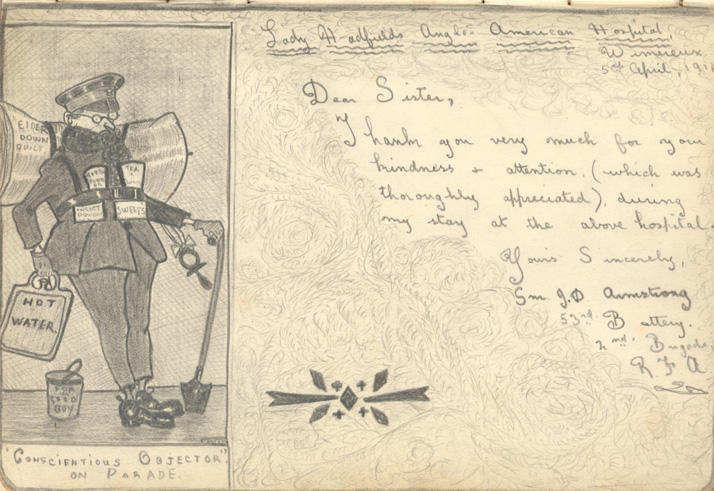 Lady Hadfields Anglo-American Hospital,
Wimereux.
5th April, 191
Dear Sister,
Thank you very much for your
kindness & attention, (which was
thoroughly appreciated), during
my stay at the above hospital.
Yours Sincerely,
Gnr J.D Armstrong
53rd Battery.
2nd Brigade,
R F A
EIDER
DOWN
QUILT
TEA
INSECT
POWDER
SWEETS
HOT
WATER
FOR
GOOD
BOY
"CONSCIENTIOUS OBJECTOR"
ON PARADE.